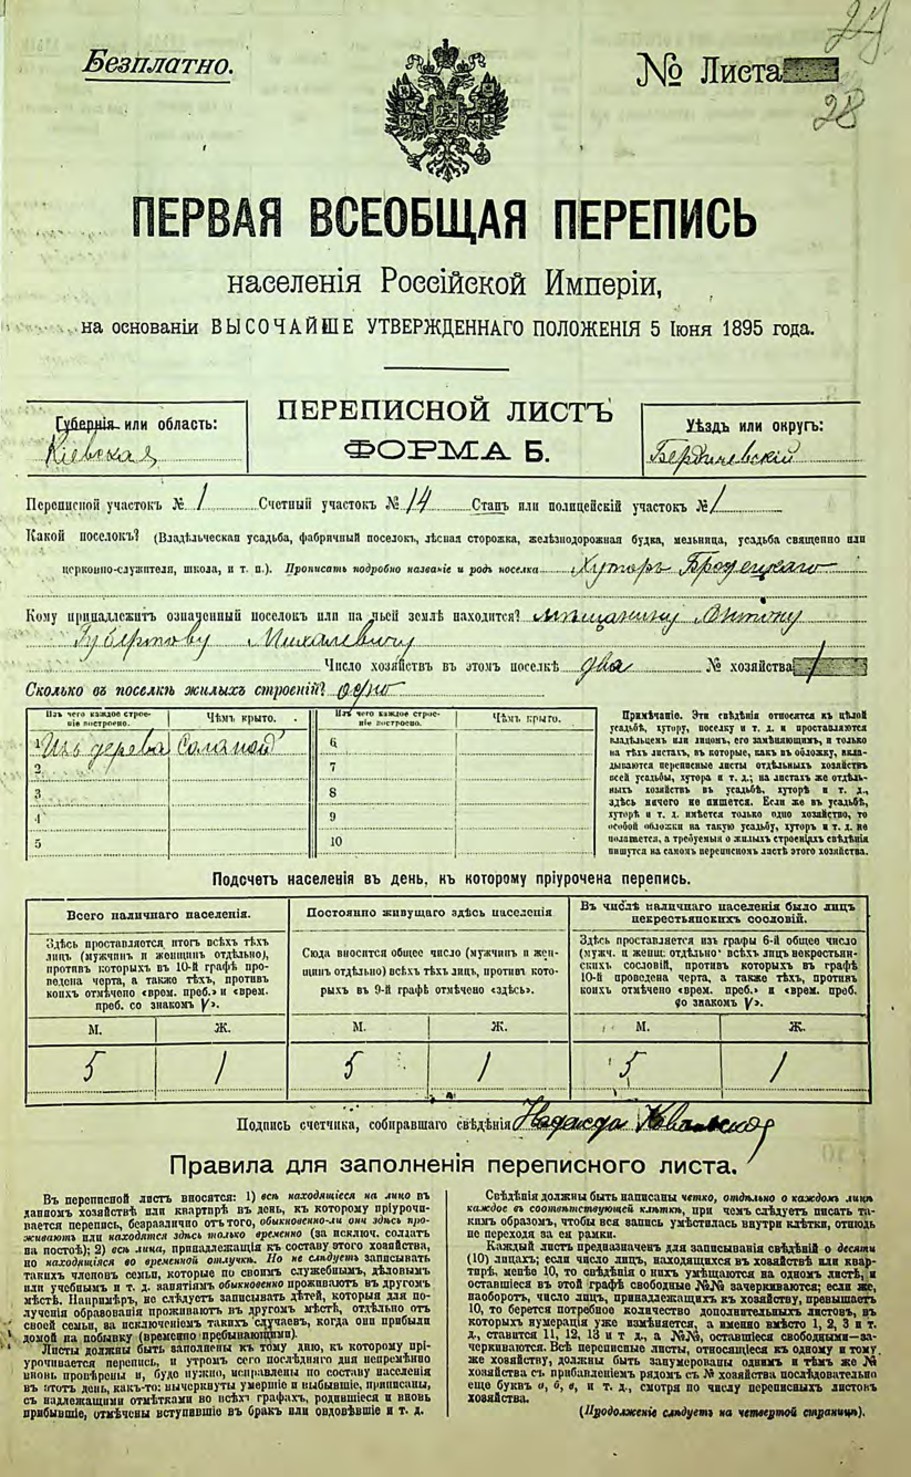 27
Безплатно.
№ Листа
28
ПЕРВАЯ ВСЕОБЩАЯ ПЕРЕПИСЬ
населенія Россійской Имперіи,
на основаніи ВЫСОЧАЙШЕ УТВЕРЖДЕННАГО ПОЛОЖЕНІЯ 5 Іюня 1895 года.
ПЕРЕПИСНОЙ ЛИСТЪ
ФОРМА Б.
Губернія или область:
Кіевская
Уѣздъ или округъ:
Бердичевскій
Переписной участокъ № 1 Счетный участокъ № 14 Станъ или полицейскій участокъ № 1
Какой поселокъ? (Владѣльческая усадьба, фабричный поселокъ, лѣсная сторожка, желѣзнодорожная будка, мельница, усадьба священно или
церковно-служителя, школа, и т. п.). Прописать подробно названіе и родъ поселка Хуторъ Бродецкаго
Кому принадлежитъ означенный поселокъ или на чьей землѣ находится? мѣщанину Антону
Губертову Михалевичу
Число хозяйствъ въ этомъ поселкѣ два № хозяйства 1
Сколько въ поселкѣ жилыхъ строеній? одно
Изъ чего каждое строеніе построено. Чѣмъ крыто. Изъ чего каждое строеніе построено. Чѣмъ крыто.
1 Изъ дерева Соломой 6
2 7
3 8
4 9
5 10
Примѣчаніе. Эти свѣдѣнія относятся къ цѣлой
усадьбѣ, хутору, поселку и т. д. и проставляются
владѣльцемъ или лицомъ, его замѣняющимъ, и только
на тѣхъ листахъ, въ которые, какъ въ обложку, вкла-
дываются переписные листы отдѣльныхъ хозяйствъ
всей усадьбы, хутора и т. д.; на листахъ же отдѣль-
ныхъ хозяйствъ въ усадьбѣ, хуторѣ и т. д.,
здѣсь ничего не пишется. Если же въ усадьбѣ,
хуторѣ и т. д. имѣется только одно хозяйство, то
особой обложки на такую усадьбу, хуторъ и т. д. не
полагается, а требуемыя о жилыхъ строеніяхъ свѣдѣнія
пишутся на самомъ переписномъ листѣ этого хозяйства.
Подсчетъ населенія въ день, къ которому пріурочена перепись.
Всего наличнаго населенія.
Здѣсь проставляется итогъ всѣхъ тѣхъ
лицъ (мужчинъ и женщинъ отдѣльно),
противъ которыхъ въ 10-й графѣ про-
ведена черта, а также тѣхъ, противъ
коихъ отмѣчено «врем. преб.» и «врем.
преб. со знакомъ V».
Постоянно живущаго здѣсь населенія
Сюда вносится общее число (мужчинъ и жен-
щинъ отдѣльно) всѣхъ тѣхъ лицъ, противъ кото-
рыхъ въ 9-й графѣ отмѣчено «здѣсь».
Въ числѣ наличнаго населенія было лицъ
некрестьянскихъ сословій.
Здѣсь проставляется изъ графы 6-й общее число
(мужч. и женщ. отдѣльно) всѣхъ лицъ некрестьян-
скихъ сословій, противъ которыхъ въ графѣ
10-й проведена черта, а также тѣхъ, противъ
коихъ отмѣчено «врем. преб.» и «врем. преб.
со знакомъ V».
М. Ж. М. Ж. М. Ж.
5 1 5 1 5 1
Подпись счетчика, собиравшаго свѣдѣнія
Правила для заполненія переписного листа.
Въ переписной листъ вносятся: 1) всѣ находящіеся на лицо въ
данномъ хозяйствѣ или квартирѣ въ день, къ которому пріурочи-
вается перепись, безразлично отъ того, обыкновенно-ли они здѣсь про-
живаютъ или находятся здѣсь только временно (за исключ. солдатъ
на постоѣ); 2) всѣ лица, принадлежащія къ составу этого хозяйства,
но находящіяся во временной отлучкѣ. Но не слѣдуетъ записывать
такихъ членовъ семьи, которые по своимъ служебнымъ, дѣловымъ
или учебнымъ и т. д. занятіямъ обыкновенно проживаютъ въ другомъ
мѣстѣ. Напримѣръ, не слѣдуетъ записывать дѣтей, которыя для по-
лученія образованія проживаютъ въ другомъ мѣстѣ, отдѣльно отъ
своей семьи, за исключеніемъ такихъ случаевъ, когда они прибыли
домой на побывку (временно пребывающими).
Листы должны быть заполнены къ тому дню, къ которому прі-
урочивается перепись, и утромъ сего послѣдняго дня непремѣнно
вновь провѣрены и, буде нужно, исправлены по составу населенія
въ этотъ день, какъ-то: вычеркнуты умершіе и выбывшіе, приписаны,
съ надлежащими отмѣтками во всѣхъ графахъ, родившіеся и вновь
прибывшіе, отмѣчены вступившіе въ бракъ или овдовѣвшіе и т. д.
Свѣдѣнія должны быть написаны четко, отдѣльно о каждомъ лицѣ
каждое въ соотвѣтствующей клѣткѣ, при чемъ слѣдуетъ писать та-
кимъ образомъ, чтобы вся запись умѣстилась внутри клѣтки, отнюдь
не переходя за ея рамки.
Каждый листъ предназначенъ для записыванія свѣдѣній о десяти
(10) лицахъ; если число лицъ, находящихся въ хозяйствѣ или квар-
тирѣ, менѣе 10, то свѣдѣнія о нихъ умѣщаются на одномъ листѣ, и
оставшіеся въ этой графѣ свободные №№ зачеркиваются; если же,
наоборотъ, число лицъ, принадлежащихъ къ хозяйству, превышаетъ
10, то берется потребное количество дополнительныхъ листовъ, въ
которыхъ нумерація уже измѣняется, а именно вмѣсто 1, 2, 3 и т.
д., ставится 11, 12, 13 и т. д., а №№, оставшіеся свободными—за-
черкиваются. Всѣ переписные листы, относящіеся къ одному и тому
же хозяйству, должны быть занумерованы однимъ и тѣмъ же №
хозяйства съ прибавленіемъ рядомъ съ № хозяйства послѣдовательно
еще буквъ а, б, в, и т. д., смотря по числу переписныхъ листовъ
хозяйства.
(Продолженіе слѣдуетъ на четвертой страницѣ).